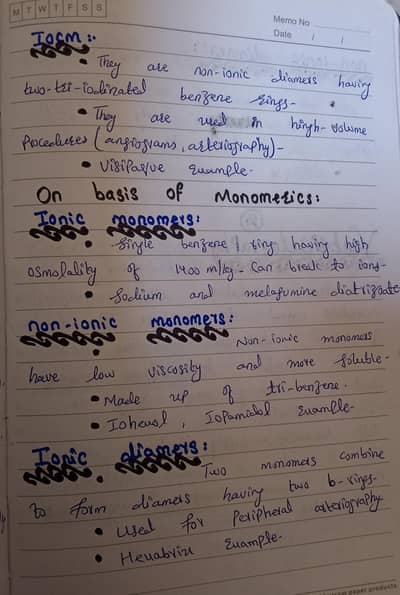 M T W T F S S
Memo No
Date / /
IOCM:
• They are non-ionic diamers having
two-tri-iodinated benzene rings-
• They are used in hingh-volume
Procedures (angiograms, arteriography)-
• Visipaque Example-
On basis of Monomerics:
Ionic monomers:
• Single benzene ring having high
osmolality of 1400 m/kg- Can break to ions-
• Sodium and melagumine diatrizoate
non-ionic monomers:
• Non-ionic monomers
have low viscosity and more soluble-
• Made up of tri-benzene.
• Iohexol, Iopamidol Example-
Ionic diamers:
Two monomers combine
to form diamers having two b-rings-
• Used for Peripheral arteriography
• Hexabrix Example-
paper products